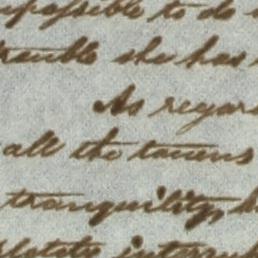 impossible to do
trouble she has
As regar
all the towns
tranquility, h